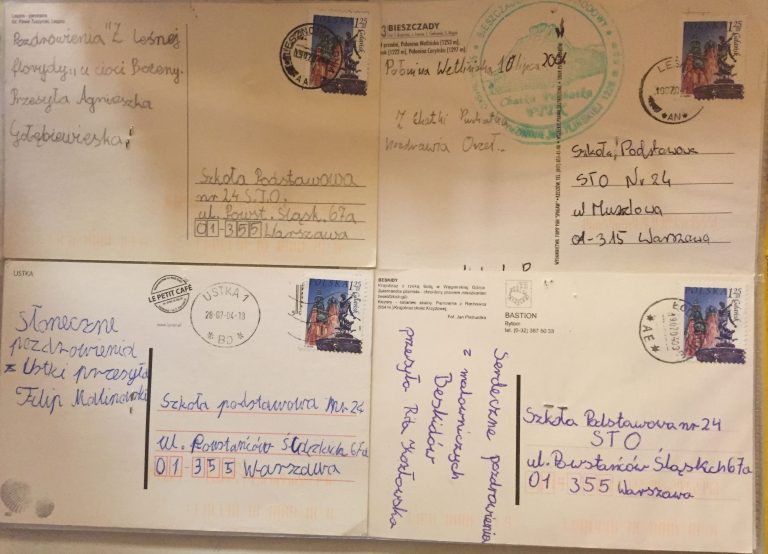 Pozdrowienia "Z Leśnej
florydy" u cioci Bożeny.
Przesyła Agnieszka
Gołębiewska
Szkoła Podstawowa
nr 24 S.T.O.
ul. Powst. Śląsk. 67a
01-355 Warszawa
POLSKA 1,25
Gdańsk
BIESZCZADY
Połonina Wetlińska 10 lipca 2004
Z Chatki Puchatka
pozdrawia Orzeł.
Chatka Puchatka
PTTK
POLSKA 1,25
Gdańsk
Szkoła Podstawowa
STO Nr 24
ul Muszlowa
01-315 Warszawa
USTKA
LE PETIT CAFÉ
USTKA 1
28-07-04-18
BD
POLSKA 1,25
Gdańsk
Słoneczne
pozdrowienia
z Ustki przesyła
Filip Malinowski
Szkoła podstawowa Nr. 24
ul. Powstańców Śląskich 67a
01-355 Warszawa
BESKIDY
Fot. Jan
BASTION
Bytom
tel. (0-32) 387 50 33
POLSKA 1,25
Gdańsk
Serdeczne pozdrowienia
z malowniczych
Beskidów
przesyła Rita Kozłowska
Szkoła Podstawowa nr 24
STO
ul. Powstańców Śląskich 67a
01 355 Warszawa